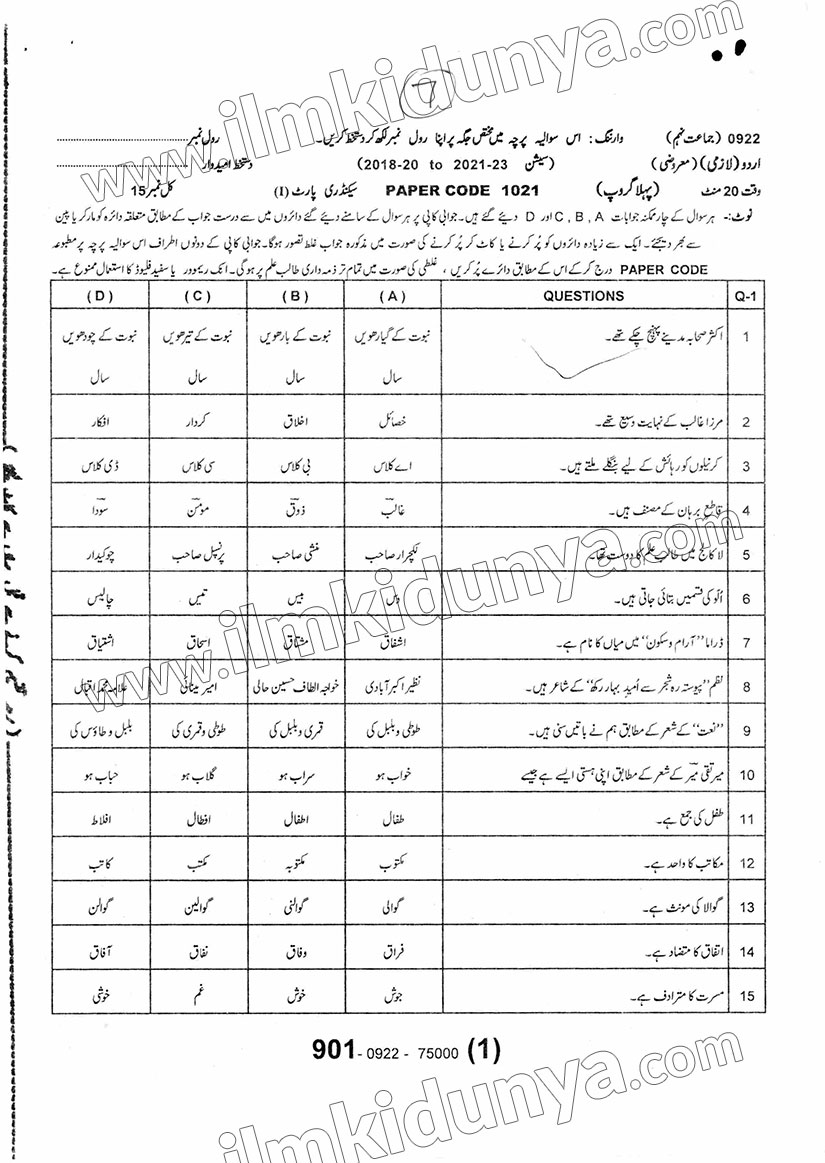 www.ilmkidunya.com
7
0922 (جماعت نہم) وارننگ: اس سوالیہ پرچہ میں مختص جگہ پر اپنا رول نمبر لکھ کر دستخط کریں۔ رول نمبر
اردو (لازمی) (معروضی) (سیشن 2018-20 to 2021-23) دستخط امیدوار
وقت 20 منٹ (پہلا گروپ) PAPER CODE 1021 سیکنڈری پارٹ (I) کل نمبر 15
نوٹ:- ہر سوال کے چار ممکنہ جوابات A , B , C اور D دیئے گئے ہیں۔ جوابی کاپی پر ہر سوال کے سامنے دیئے گئے دائروں میں سے درست جواب کے مطابق متعلقہ دائرہ کو مارکر یا پین
سے بھر دیجئے۔ ایک سے زیادہ دائروں کو پُر کرنے یا کاٹ کر پُر کرنے کی صورت میں مذکورہ جواب غلط تصور ہوگا۔ جوابی کاپی کے دونوں اطراف اس سوالیہ پرچہ پر مطبوعہ
PAPER CODE درج کرکے اس کے مطابق دائرے پُر کریں ، غلطی کی صورت میں تمام تر ذمہ داری طالب علم پر ہوگی۔ انک ریموور یا سفید فلیوڈ کا استعمال ممنوع ہے۔
Q-1 QUESTIONS (A) (B) (C) (D)
1 اکثر صحابہ مدینے پہنچ چکے تھے۔ نبوت کے گیارھویں سال نبوت کے بارھویں سال نبوت کے تیرھویں سال نبوت کے چودھویں سال
2 مرزا غالب کے نہایت وسیع تھے۔ خصائل اخلاق کردار افکار
3 کرنیلوں کو رہائش کے لیے بنگلے ملتے ہیں۔ اے کلاس بی کلاس سی کلاس ڈی کلاس
4 قاطع برہان کے مصنف ہیں۔ غالب ذوق مومن سودا
5 لا کالج میں طالب علم کا دوست تھا۔ لیکچرار صاحب منشی صاحب پرنسپل صاحب چوکیدار
6 اُلو کی قسمیں بتائی جاتی ہیں۔ دس بیس تیس چالیس
7 ڈراما "آرام و سکون" میں میاں کا نام ہے۔ اشفاق مشتاق اسحاق اشتیاق
8 نظم "پیوستہ رہ شجر سے اُمید بہار رکھ" کے شاعر ہیں۔ نظیر اکبر آبادی خواجہ الطاف حسین حالی امیر مینائی علامہ محمد اقبال
9 "نعت" کے شعر کے مطابق ہم نے باتیں سنی ہیں۔ طوطی و بلبل کی قمری و بلبل کی طوطی و قمری کی بلبل و طاؤس کی
10 میر تقی میر کے شعر کے مطابق اپنی ہستی ایسے ہے جیسے خواب ہو سراب ہو گلاب ہو حباب ہو
11 طفل کی جمع ہے۔ طفال اطفال افطال افلاط
12 مکاتب کا واحد ہے۔ مکتوب مکتوبہ مکتب کاتب
13 گوالا کی مونث ہے۔ گوالی گوالنی گوالین گوالن
14 اتفاق کا متضاد ہے۔ فراق وفاق نفاق آفاق
15 مسرت کا مترادف ہے۔ جوش خوش غم خوشی
901 - 0922 - 75000 (1)
www.ilmkidunya.com
www.ilmkidunya.com